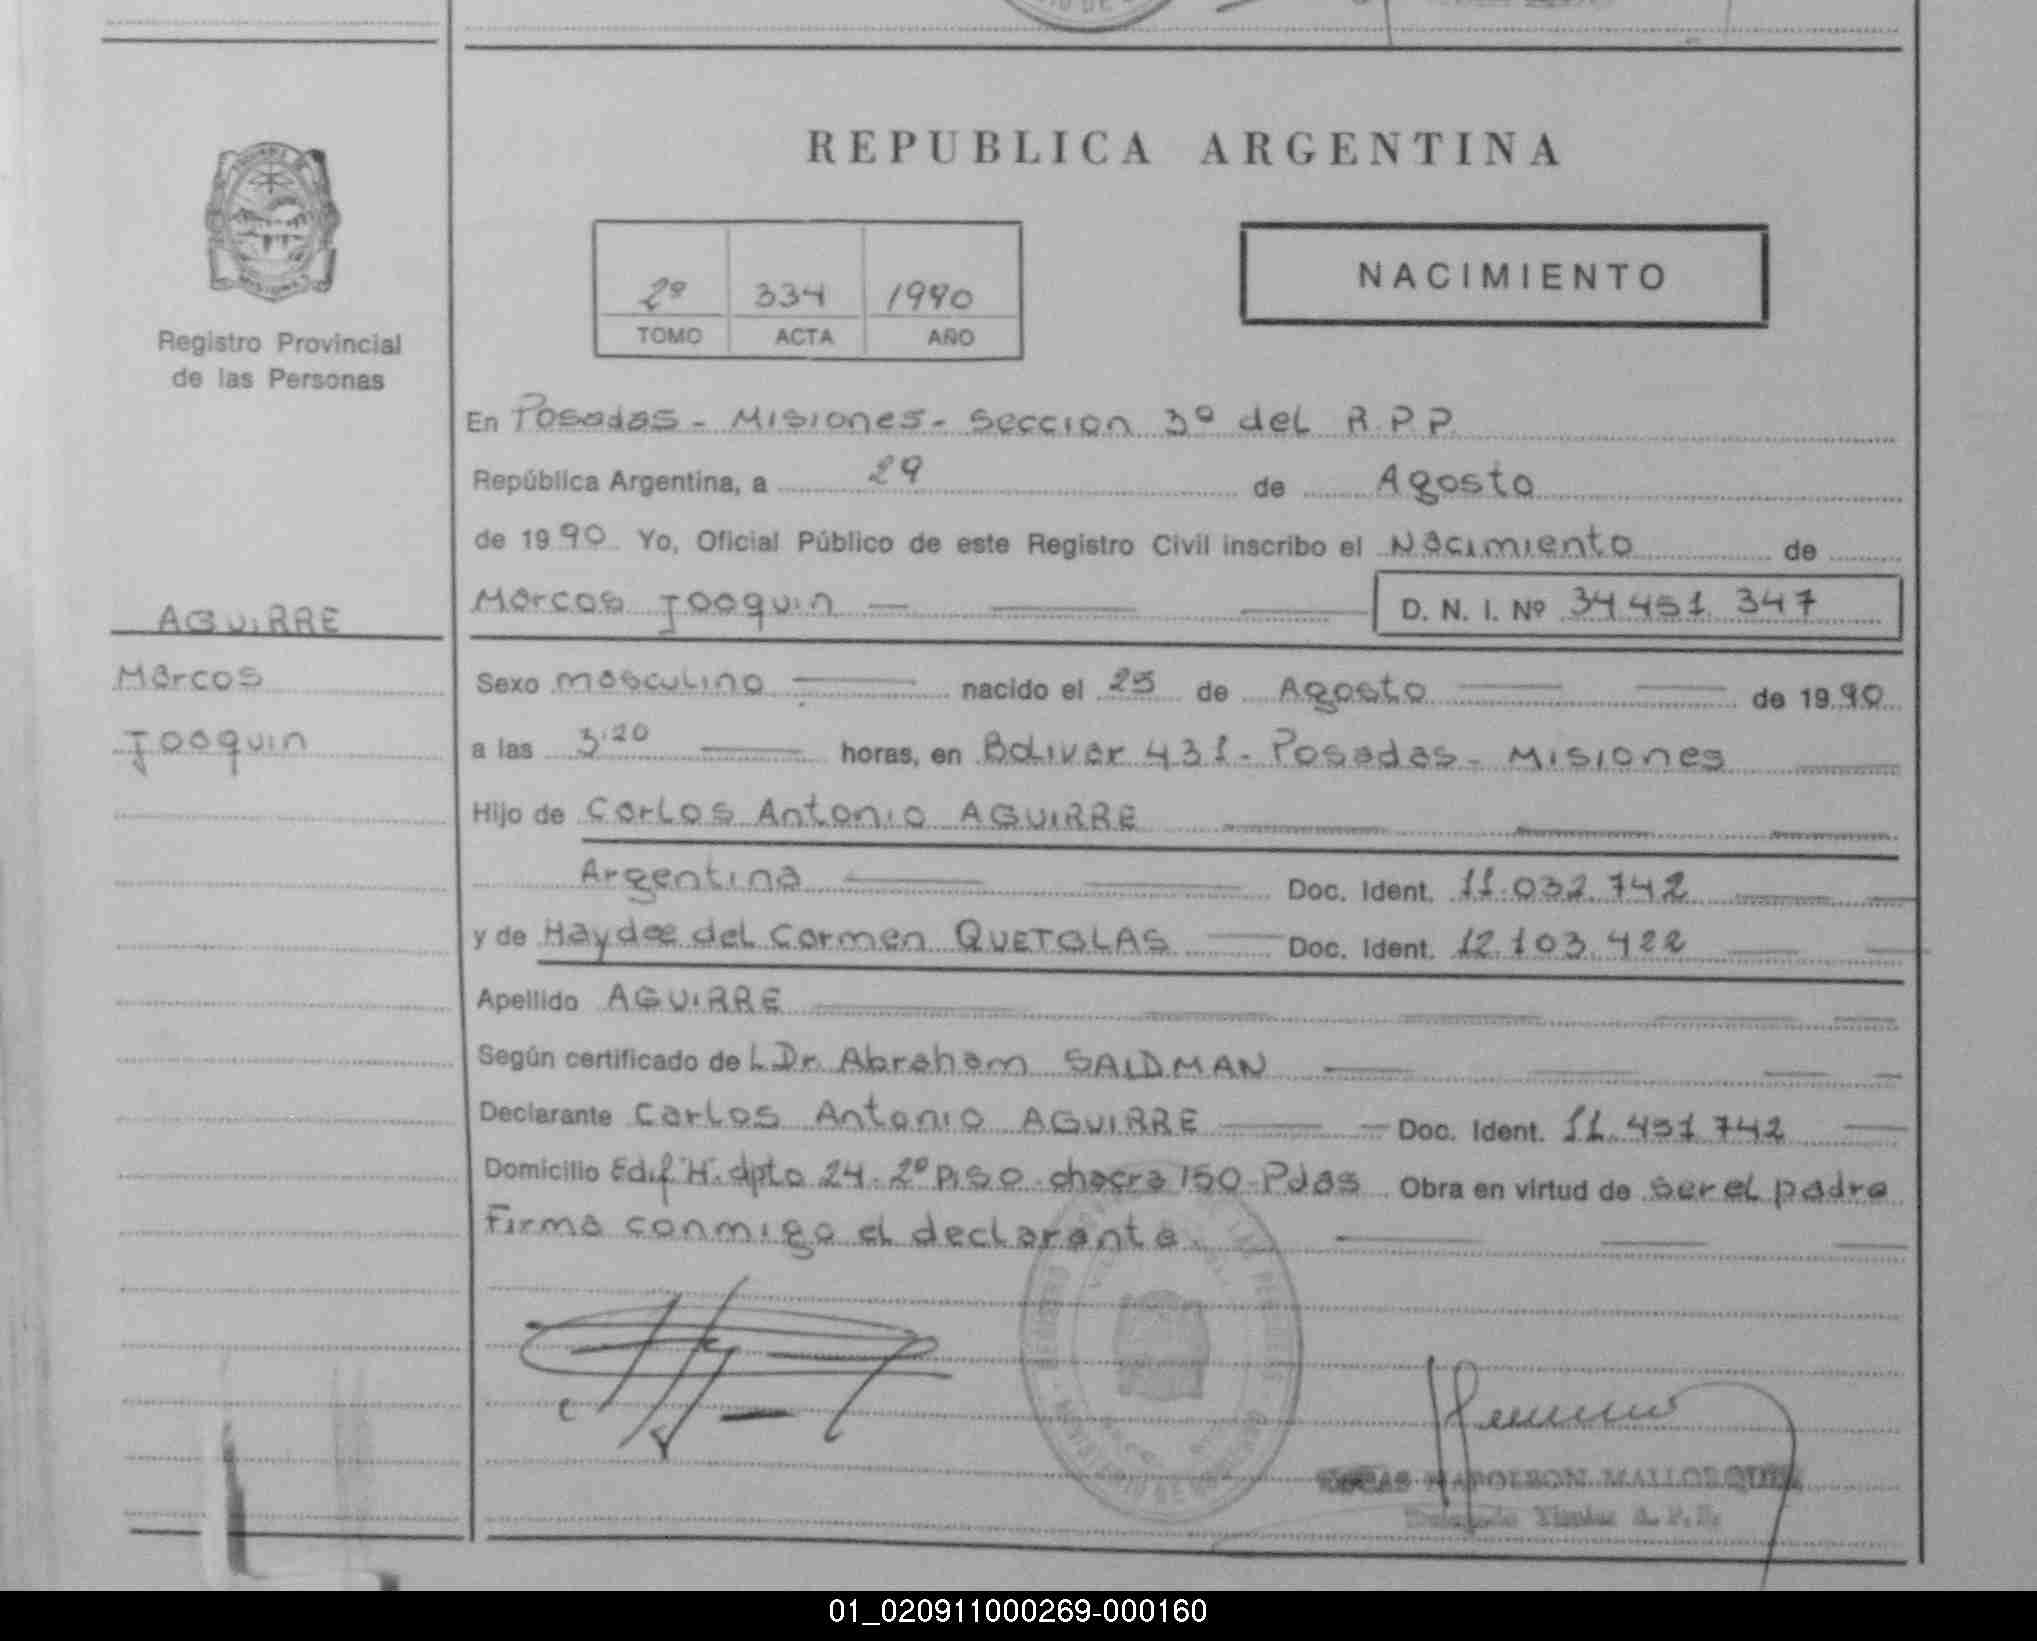 REPUBLICA ARGENTINA
NACIMIENTO
2º 334 1990
TOMO ACTA AÑO
Registro Provincial
de las Personas
En Posadas - Misiones - Seccion 3º del R.P.P.
República Argentina, a 29 de Agosto
de 1990 Yo, Oficial Público de este Registro Civil inscribo el Nacimiento de
Marcos Joaquin D. N. I. Nº 34.451.347
AGUIRRE
Marcos
Joaquin
Sexo masculino nacido el 25 de Agosto de 1990
a las 3:20 horas, en Bolivar 431 - Posadas - Misiones
Hijo de Carlos Antonio AGUIRRE
Argentina Doc. Ident. 11.032.742
y de Haydee del Carmen QUETGLAS Doc. Ident. 12.103.422
Apellido AGUIRRE
Según certificado de L Dr. Abraham SAIDMAN
Declarante Carlos Antonio AGUIRRE Doc. Ident. 11.451.742
Domicilio Edif "H" dpto 24 - 2º Piso - chacra 150 - Pdas Obra en virtud de ser el padre
Firma conmigo el declarante.
NAPOLEON MALLORQUIN
01_020911000269-000160